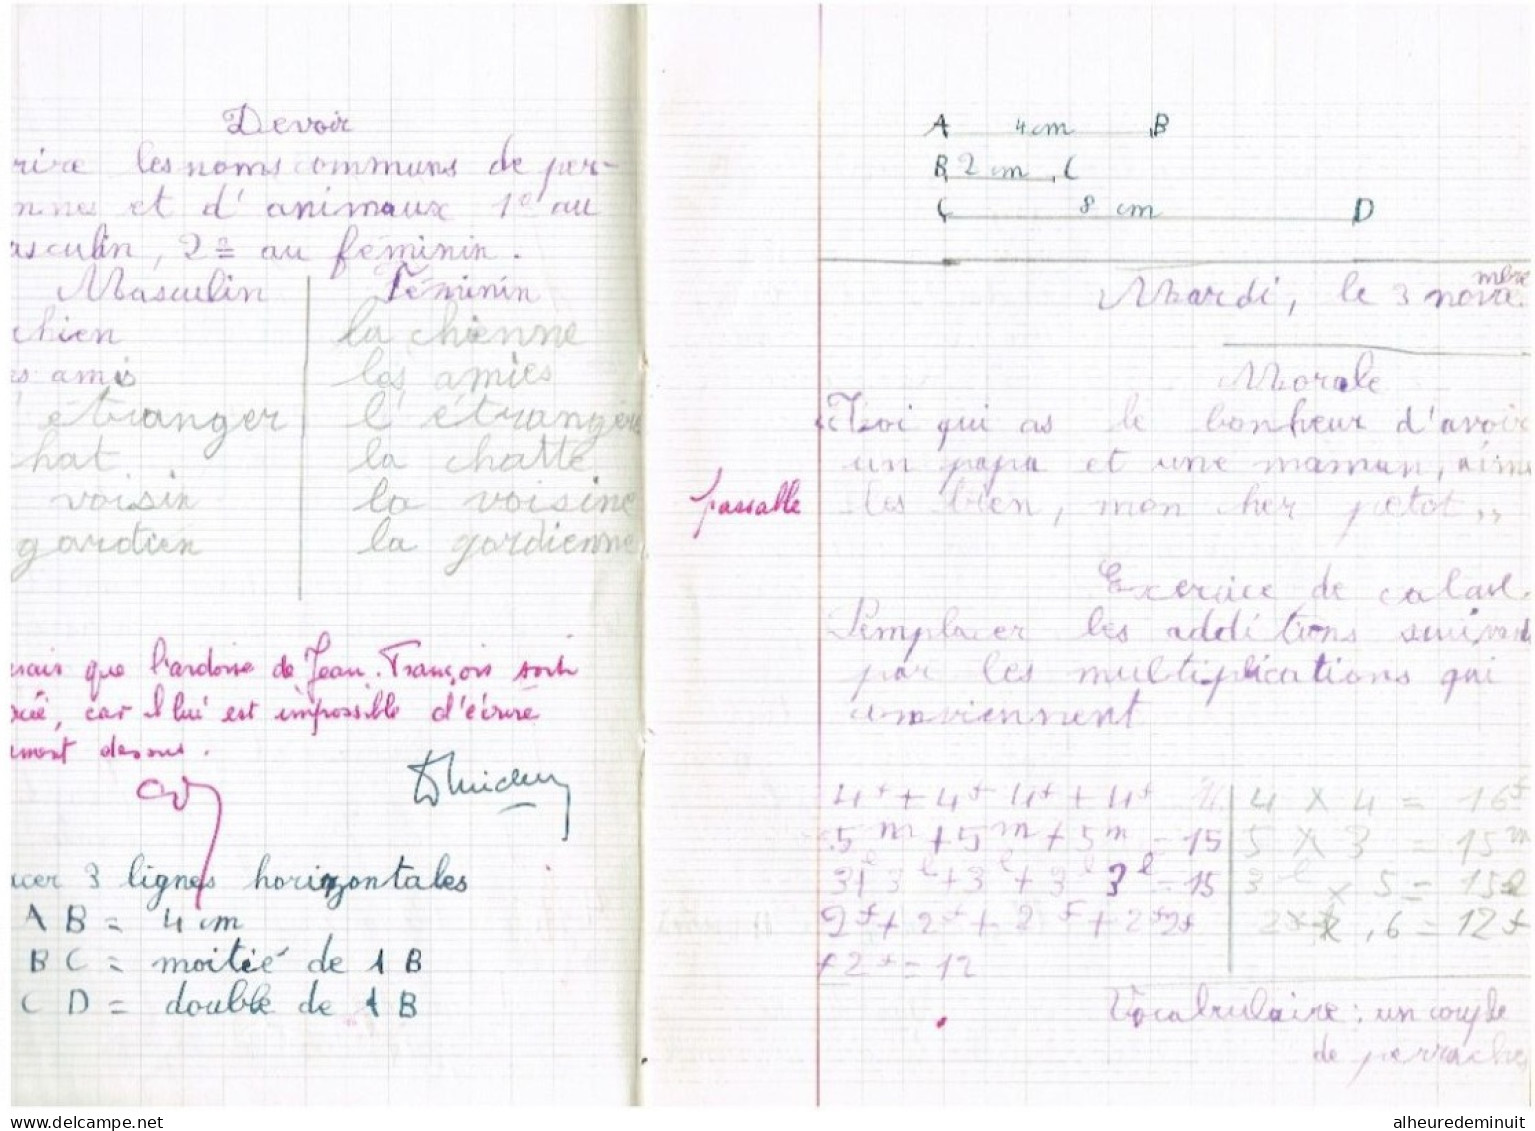 Devoir
rire les noms communs de per-
nnes et d'animaux 1º au
asculin, 2º au féminin.
Masculin Féminin
chien la chienne
es amis les amies
l'étranger l'étrangère
hat la chatte
voisin la voisine
gardien la gardienne
rais que l'ardoise de Jean-François soit
car il lui est impossible d'écrire
ment dessus.
acer 3 lignes horizontales
A B = 4 cm
B C = moitié de A B
C D = double de A B
A 4 cm B
B 2 cm C
C 8 cm D
Mardi, le 3 novembre
Morale
Toi qui as le bonheur d'avoir
un papa et une maman, aime
passable les bien, mon her petot,,
Exercice de calcul.
Remplacer les additions suivant
par les multiplications qui
conviennent
4f + 4f 4f + 4f 4 × 4 = 16f
5m + 5m + 5m = 15 5 × 3 = 15m
3l 3l + 3l + 3l 3l = 15 3l × 5 = 15l
2f + 2f + 2f + 2f 2f 2f × , 6 = 12f
+ 2f = 12
Vocabulaire : un couple
de perruches
www.delcampe.net
alheuredeminuit